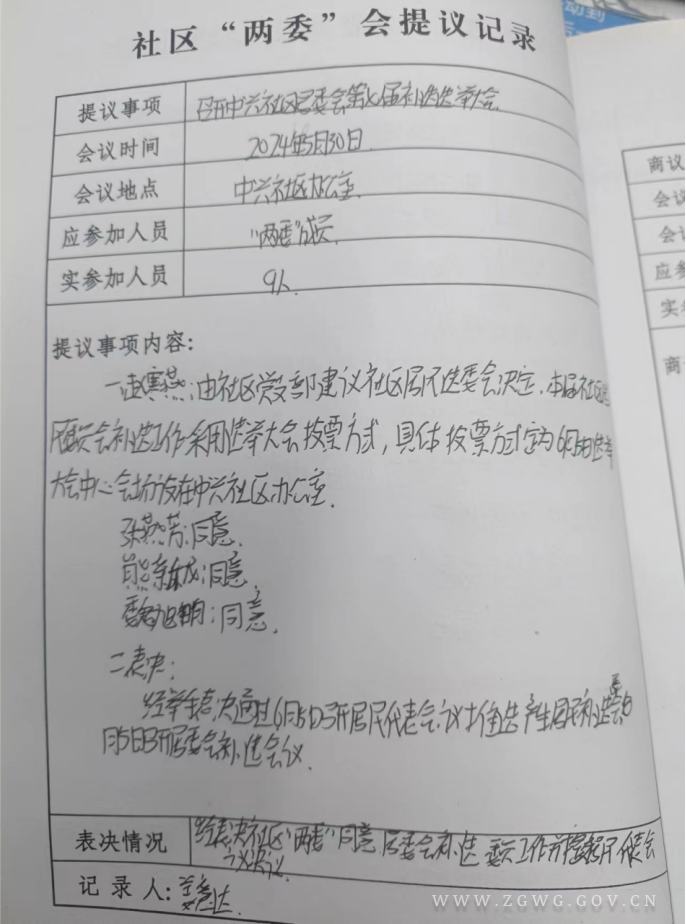 社区“两委”会提议记录
提议事项 召开中兴社区居委会第七届补选选举大会
会议时间 2024年5月30日
会议地点 中兴社区办公室
应参加人员 “两委”成员
实参加人员 9人
提议事项内容:
一、赵燕:由社区党支部建议社区居民选委会决定,本届社区
委员会补选工作采用选举大会投票方式,具体投票方式定为6月5日选举
大会中心会场放在中兴社区办公室.
张燕芳:同意.
熊新成:同意.
魏旭明:同意.
二表决:
经举手表决通过6月5日召开居民代表会议推选产生居民补选
月5日召开居委会补选会议.
表决情况 经表决社区“两委”同意居委会补选委员工作并提交居民代表会
议决议
记录人:
商议
会议
会议
应参
实参
商议
WWW.ZGWG.GOV.CN